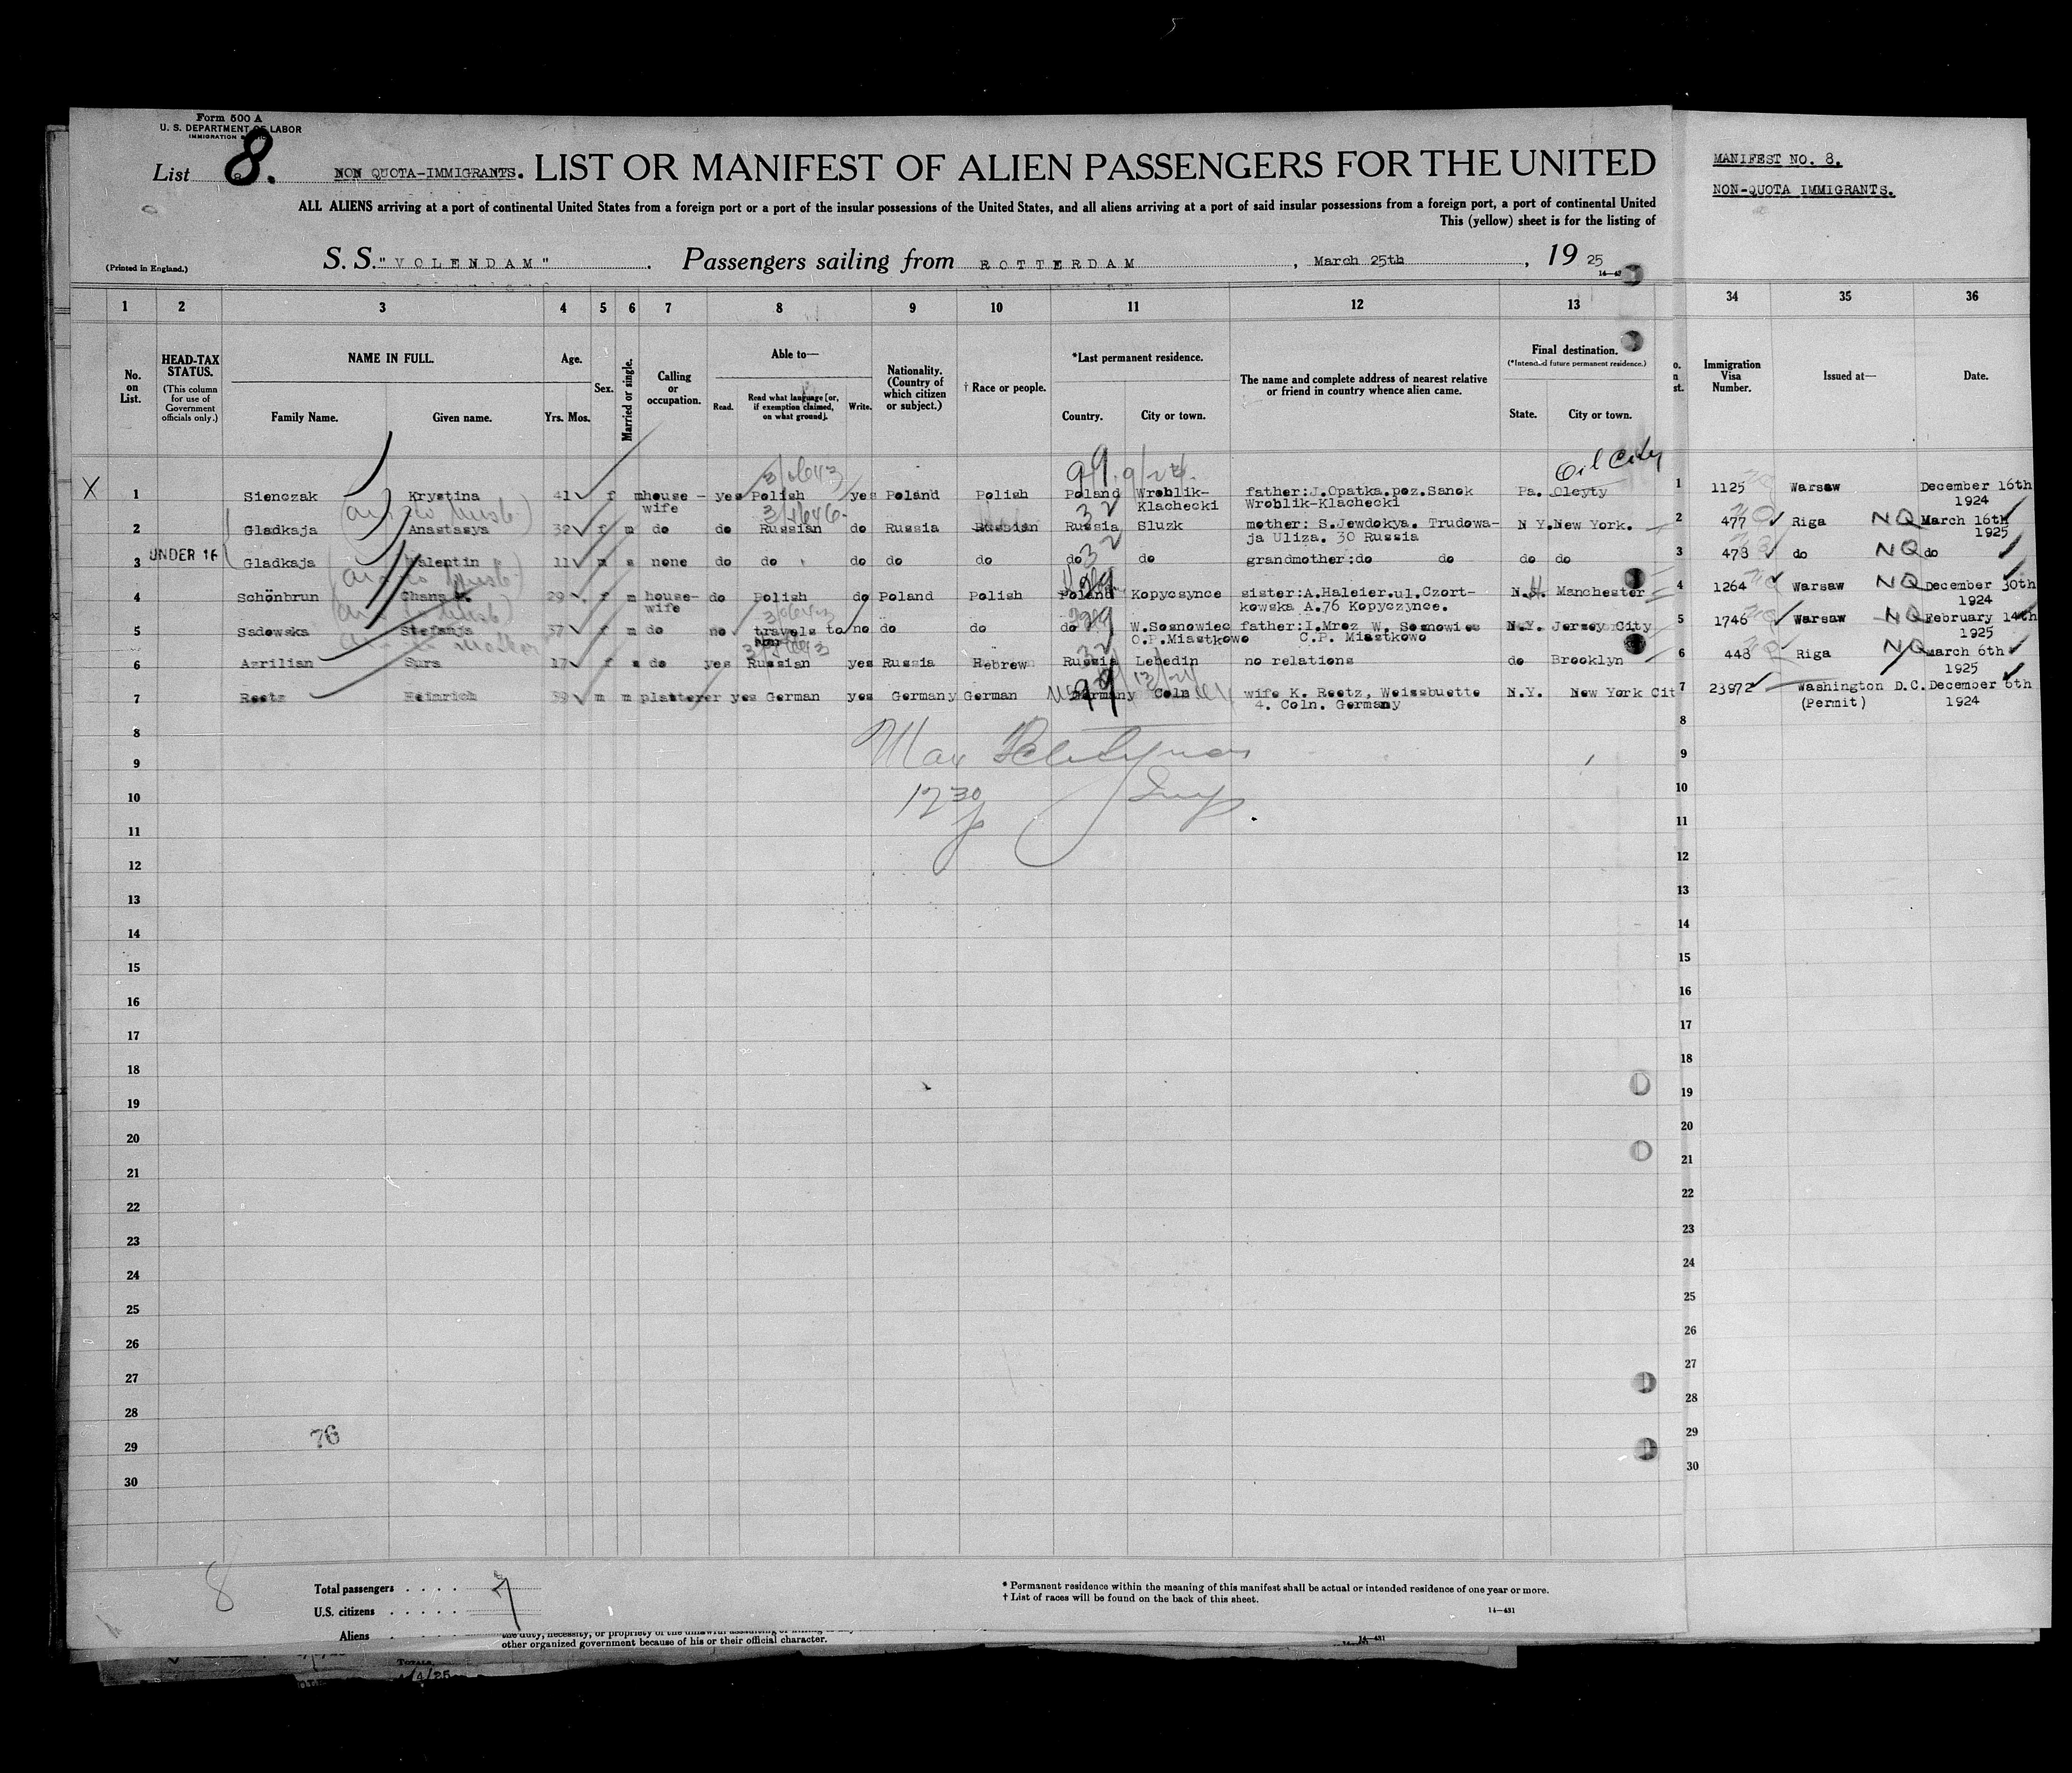 Form 500 A
U. S. DEPARTMENT OF LABOR
IMMIGRATION
List 8. NON QUOTA-IMMIGRANTS. LIST OR MANIFEST OF ALIEN PASSENGERS FOR THE UNITED
ALL ALIENS arriving at a port of continental United States from a foreign port or a port of the insular possessions of the United States, and all aliens arriving at a port of said insular possessions from a foreign port, a port of continental United
This (yellow) sheet is for the listing of
(Printed in England.)
S. S. "VOLENDAM" . Passengers sailing from ROTTERDAM , March 25th , 19 25
MANIFEST NO. 8.
NON-QUOTA IMMIGRANTS.
1 2 3 4 5 6 7 8 9 10 11 12 13 34 35 36
No. on List.
HEAD-TAX STATUS.
(This column for use of Government officials only.)
NAME IN FULL.
Family Name. Given name.
Age.
Yrs. Mos.
Sex.
Married or single.
Calling or occupation.
Able to—
Read. Read what language [or, if exemption claimed, on what ground]. Write.
Nationality. (Country of which citizen or subject.)
† Race or people.
*Last permanent residence.
Country. City or town.
The name and complete address of nearest relative or friend in country whence alien came.
Final destination.
(*Intended future permanent residence.)
State. City or town.
Immigration Visa Number.
Issued at—
Date.
Oil City
X 1 Sienczak Krystina 41 f m house-wife yes Polish yes Poland Polish Poland Wroblik-Klachecki father:J.Opatka.poz.Sanok Wroblik-Klachecki Pa. Olcyty 1 1125 Warsaw December 16th 1924
2 Gladkaja Anastasya 32 f m do do Russian do Russia Russian Russia Sluzk mother: S.Jewdokya. Trudowa-ja Uliza. 30 Russia N Y. New York. 2 477 Riga NQ March 16th 1925
3 UNDER 16 Gladkaja Valentin 11 m s none do do do do do do do grandmother:do do do do 3 478 do NQ do
4 Schönbrun Chana 29 f m house-wife do Polish do Poland Polish Poland Kopycsynce sister:A.Haleier.ul.Czort-kowska A.76 Kopyczynce. N.H. Manchester 4 1264 Warsaw NQ December 30th 1924
5 Sadowska Stefanja 37 f m do no travels to no do do do W.Sosnowiec O.P.Miastkowo father:I.Mroz W. Sosnowiec C.P. Miastkowo N.Y. Jersey City 5 1746 Warsaw NQ February 14th 1925
6 Azrilian Sura 17 f s do yes Russian yes Russia Hebrew Russia Lebedin no relations do Brooklyn 6 448 Riga NQ March 6th 1925
7 Reetz Heinrich 39 m m platterer yes German yes Germany German Germany Coln wife K. Reetz, Weissbuette 4. Coln. Germany N.Y. New York Cit 7 23972 Washington D.C. (Permit) December 6th 1924
8 8
9 9
10 10
11 11
12 12
13 13
14 14
15 15
16 16
17 17
18 18
19 19
20 20
21 21
22 22
23 23
24 24
25 25
26 26
27 27
28 28
29 29
30 30
Max
12 30
76
8
Total passengers . . . . 7
U.S. citizens . . . . .
Aliens
* Permanent residence within the meaning of this manifest shall be actual or intended residence of one year or more.
† List of races will be found on the back of this sheet.
14—431
other organized government because of his or their official character.
14—431